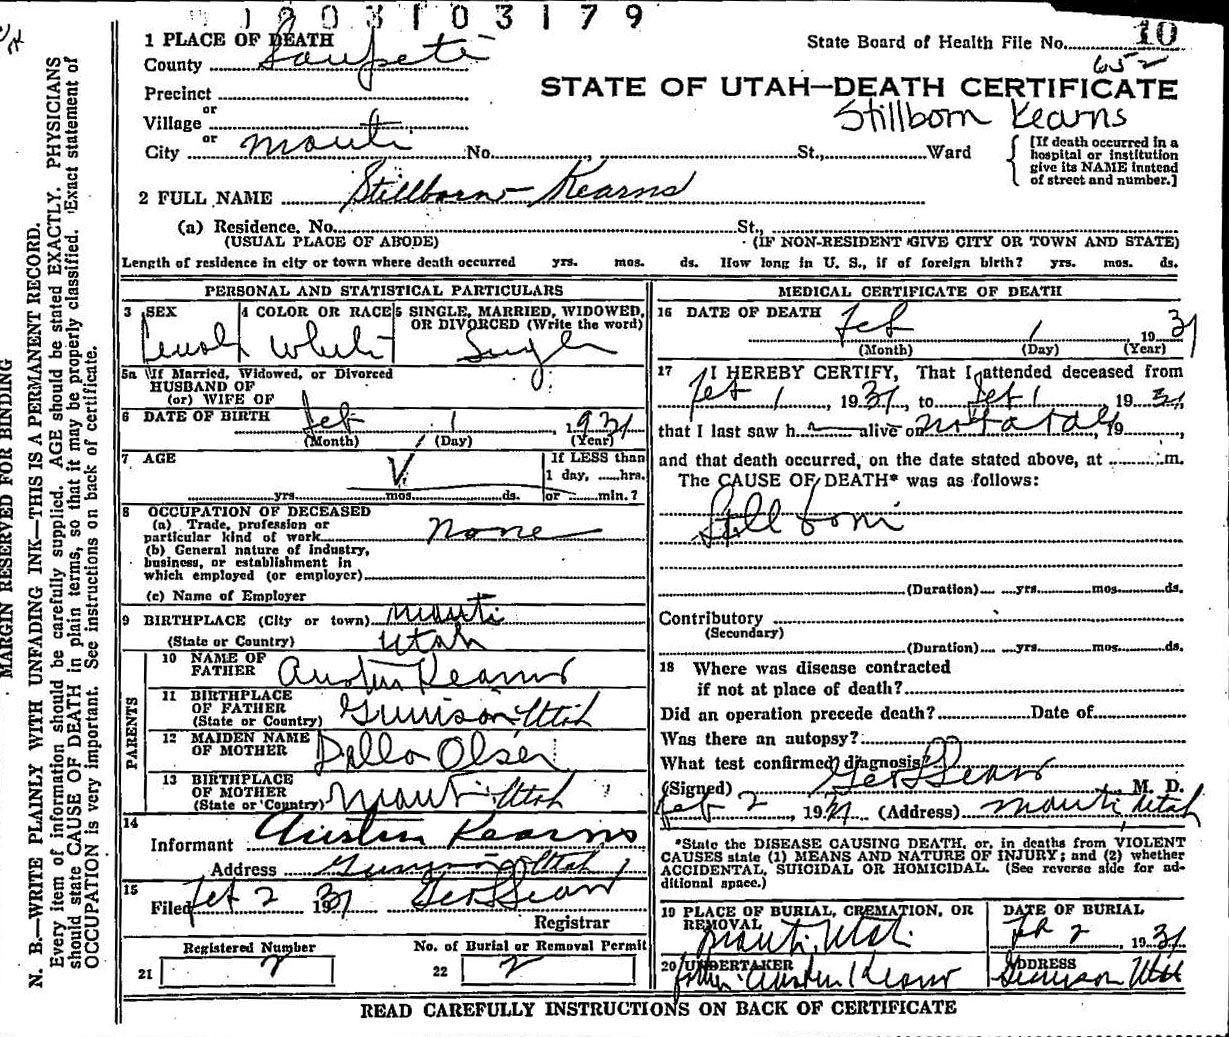 1203103179
1 PLACE OF DEATH
State Board of Health File No. 10
County Sanpete
652
STATE OF UTAH—DEATH CERTIFICATE
Precinct
or
Stillborn Kearns
Village
or
City Manti No. St., Ward
[If death occurred in a
hospital or institution
give its NAME instead
of street and number.]
2 FULL NAME Stillborn Kearns
(a) Residence. No. St.,
(USUAL PLACE OF ABODE) (IF NON-RESIDENT GIVE CITY OR TOWN AND STATE)
Length of residence in city or town where death occurred yrs. mos. ds. How long in U. S., if of foreign birth? yrs. mos. ds.
PERSONAL AND STATISTICAL PARTICULARS
3 SEX 4 COLOR OR RACE 5 SINGLE, MARRIED, WIDOWED,
OR DIVORCED (Write the word)
Female White Single
5a If Married, Widowed, or Divorced
HUSBAND OF
(or) WIFE OF
6 DATE OF BIRTH Feb 1, 1931
(Month) (Day) (Year)
7 AGE
If LESS than
1 day, ......hrs.
yrs. mos. ds. or ......min.?
8 OCCUPATION OF DECEASED
(a) Trade, profession or
particular kind of work None
(b) General nature of industry,
business, or establishment in
which employed (or employer)
(c) Name of Employer
9 BIRTHPLACE (City or town) Manti
(State or Country) Utah
PARENTS
10 NAME OF
FATHER Austin Kearns
11 BIRTHPLACE
OF FATHER
(State or Country) Gunnison Utah
12 MAIDEN NAME
OF MOTHER Della Olsen
13 BIRTHPLACE
OF MOTHER
(State or Country) Manti Utah
14
Informant Austin Kearns
Address Gunnison Utah
15
Filed Feb 2 1931
Registrar
Registered Number No. of Burial or Removal Permit
21 2 22 2
MEDICAL CERTIFICATE OF DEATH
16 DATE OF DEATH Feb 1 1931
(Month) (Day) (Year)
17 I HEREBY CERTIFY, That I attended deceased from
Feb 1, 1931, to Feb 1 1931,
that I last saw h alive on not at all, 19
and that death occurred, on the date stated above, at m.
The CAUSE OF DEATH* was as follows:
Still born
(Duration) yrs. mos. ds.
Contributory
(Secondary)
(Duration) yrs. mos. ds.
18 Where was disease contracted
if not at place of death?
Did an operation precede death? Date of
Was there an autopsy?
What test confirmed diagnosis?
(Signed) M. D.
Feb 2, 1931 (Address) Manti Utah
*State the DISEASE CAUSING DEATH, or, in deaths from VIOLENT
CAUSES state (1) MEANS AND NATURE OF INJURY; and (2) whether
ACCIDENTAL, SUICIDAL OR HOMICIDAL. (See reverse side for ad-
ditional space.)
19 PLACE OF BURIAL, CREMATION, OR
REMOVAL
Manti, Utah.
DATE OF BURIAL
Feb 2, 1931
20 UNDERTAKER
Austin Kearns
ADDRESS
Gunnison Utah
READ CAREFULLY INSTRUCTIONS ON BACK OF CERTIFICATE
MARGIN RESERVED FOR BINDING
N. B.—WRITE PLAINLY WITH UNFADING INK—THIS IS A PERMANENT RECORD.
Every item of information should be carefully supplied. AGE should be stated EXACTLY. PHYSICIANS
should state CAUSE OF DEATH in plain terms, so that it may be properly classified. Exact statement of
OCCUPATION is very important. See instructions on back of certificate.